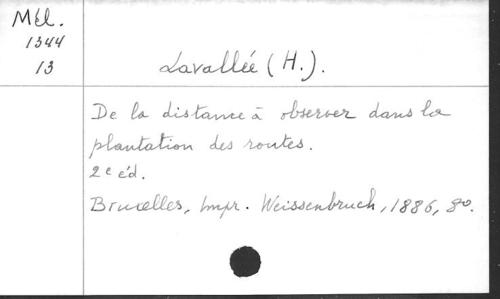 Mél.
1344
13
Lavallée (H.).
De la distance à observer dans la
plantation des routes.
2e éd.
Bruxelles, Impr. Weissenbruch, 1886, 8o.